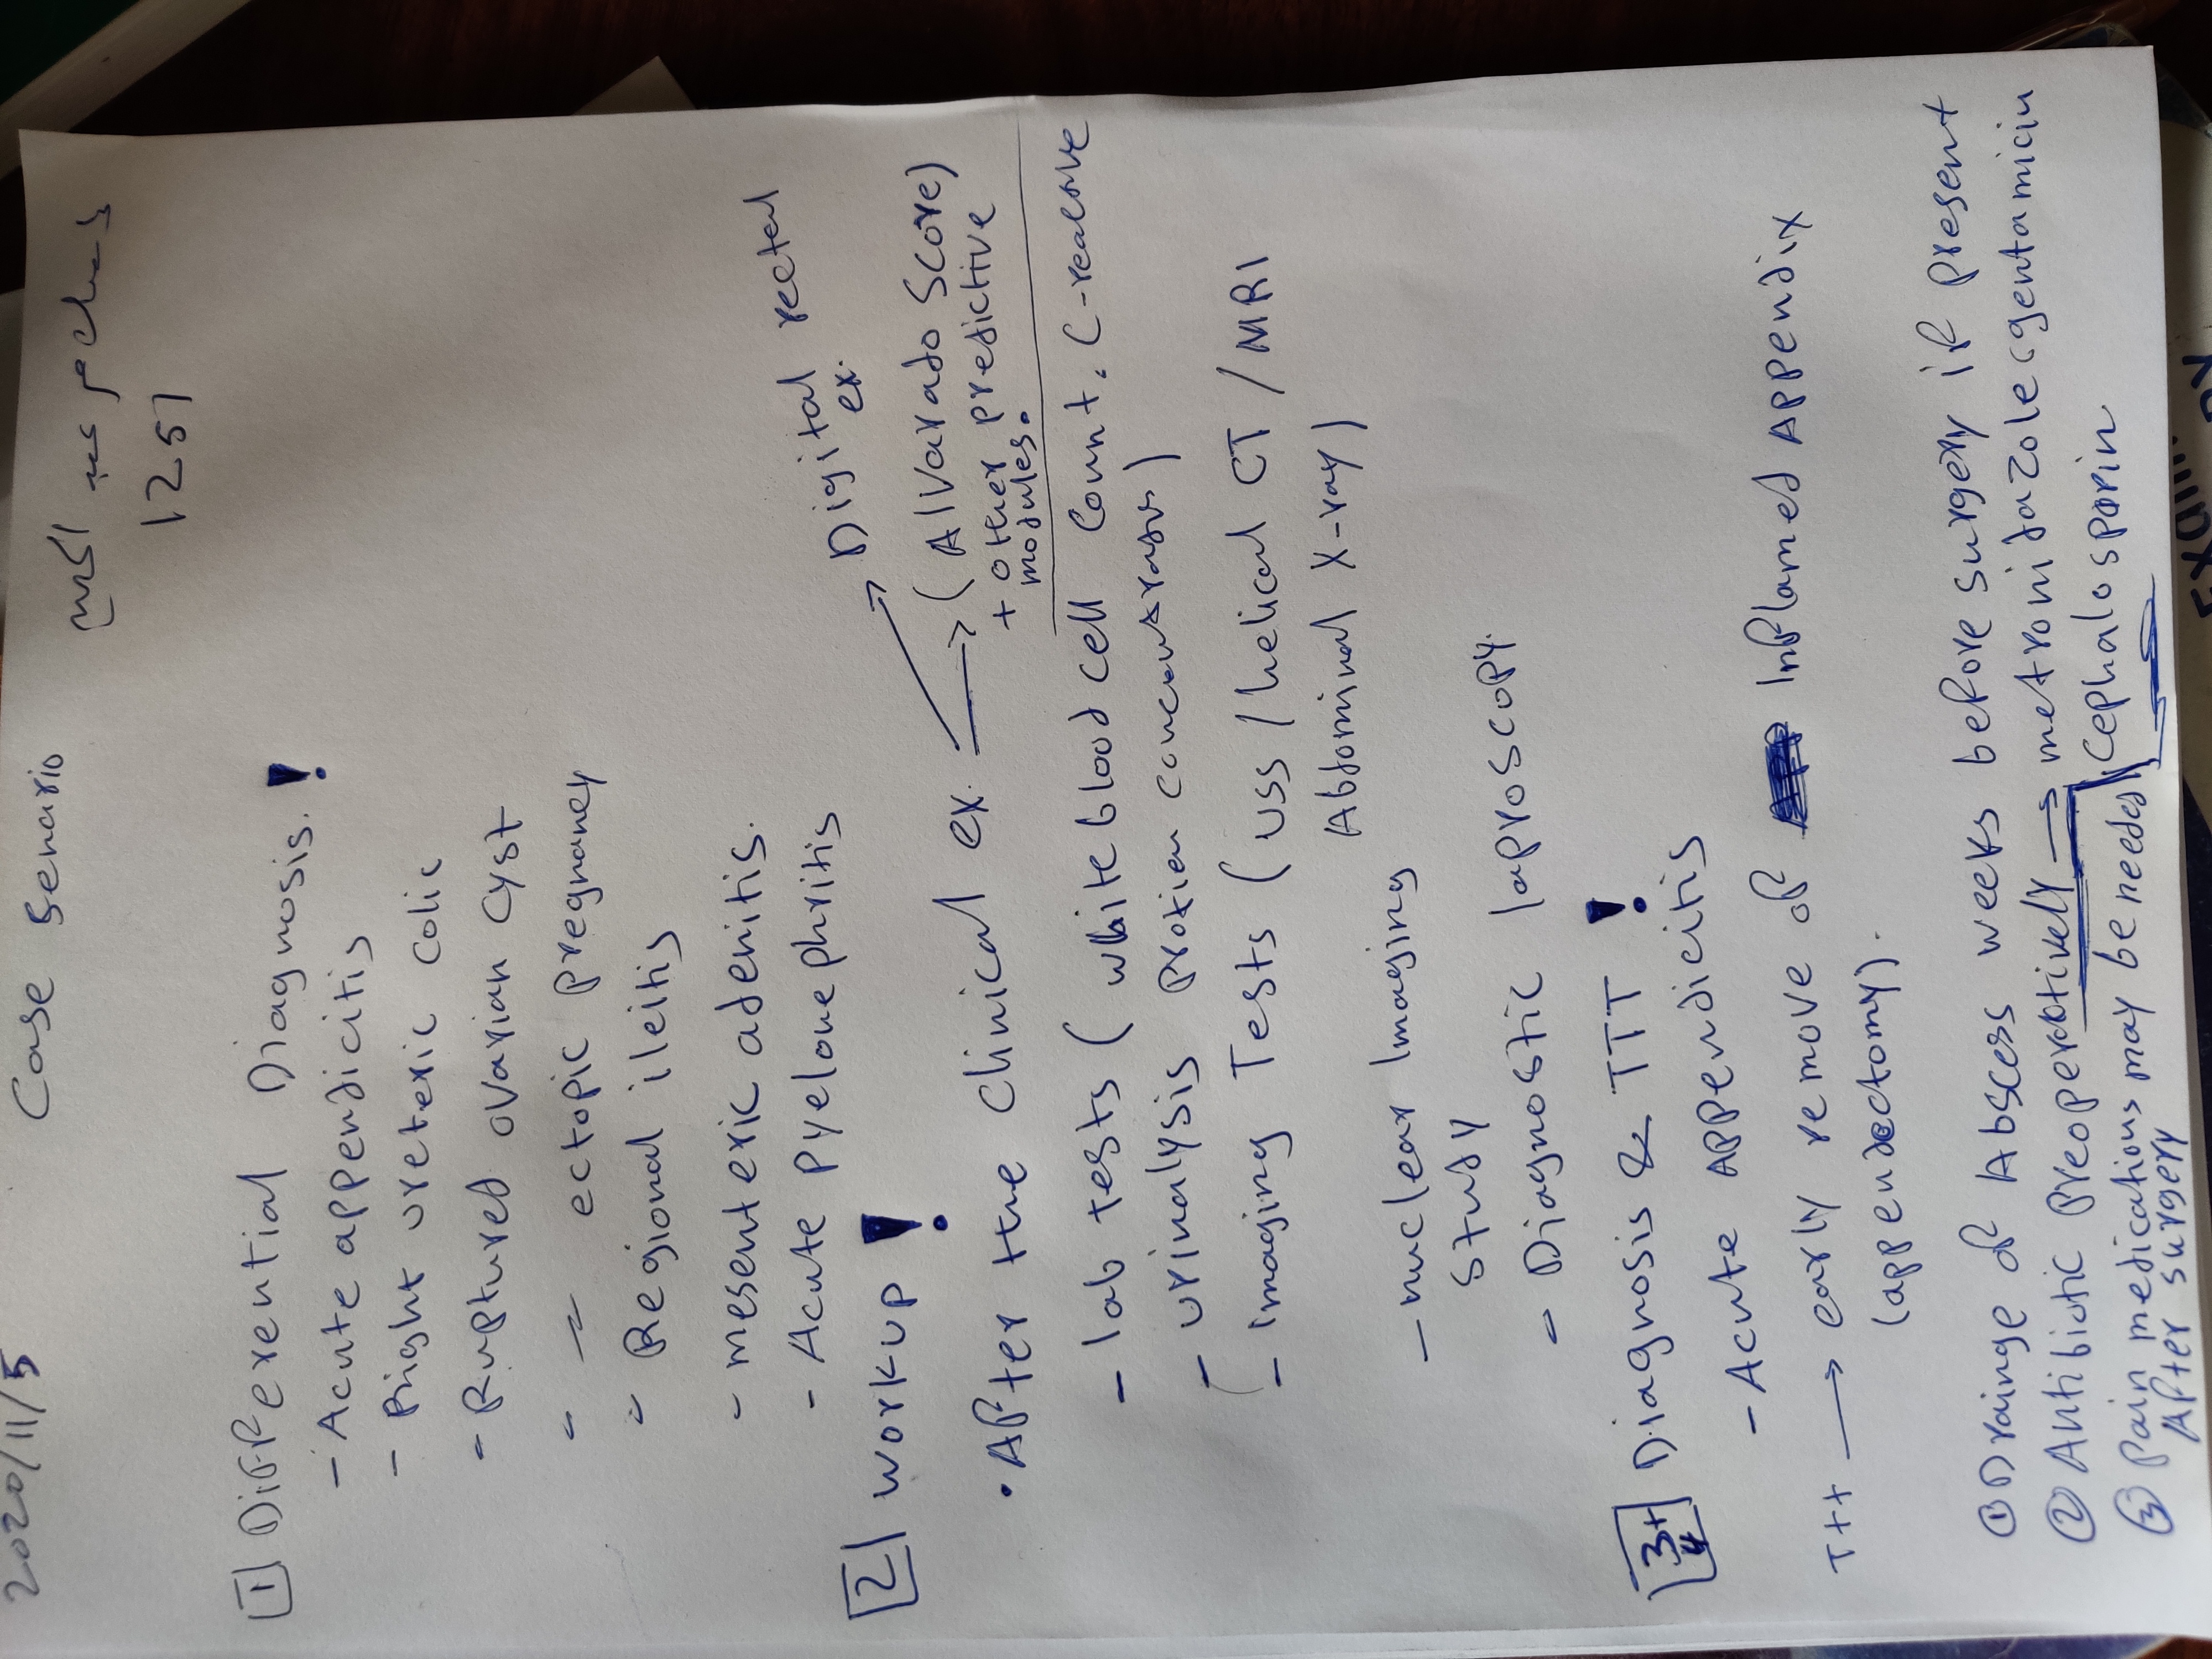 2020/11/5
Case Senario
1251
1 Differential Diagnosis !
- Acute appendicitis
- Right ureteric colic
- Ruptured ovarian cyst
- " ectopic pregnancy
- Regional ileitis
- mesenteric adenitis.
- Acute pyelonephritis
2 workup !
. After the clinical ex. → Digital rectal ex.
→ (Alvarado Score)
+ other predictive
modules.
- lab tests (white blood cell count, C-reacrve
- urinalysis protien
- Imaging Tests (USS / helical CT / MRI
Abdominal X-ray)
- nuclear Imaging
study
- Diagnostic laproscopy.
3+4 Diagnosis & TTT !
- Acute Appendicitis
Ttt → early remove of Inflamed Appendix
(appendectomy).
① Drainge of Abscess weeks before surgery if present
② Antibiotic preoperotively → metronidazole, gentamicin
Cephalosporin
③ Pain medications may be needed
After surgery